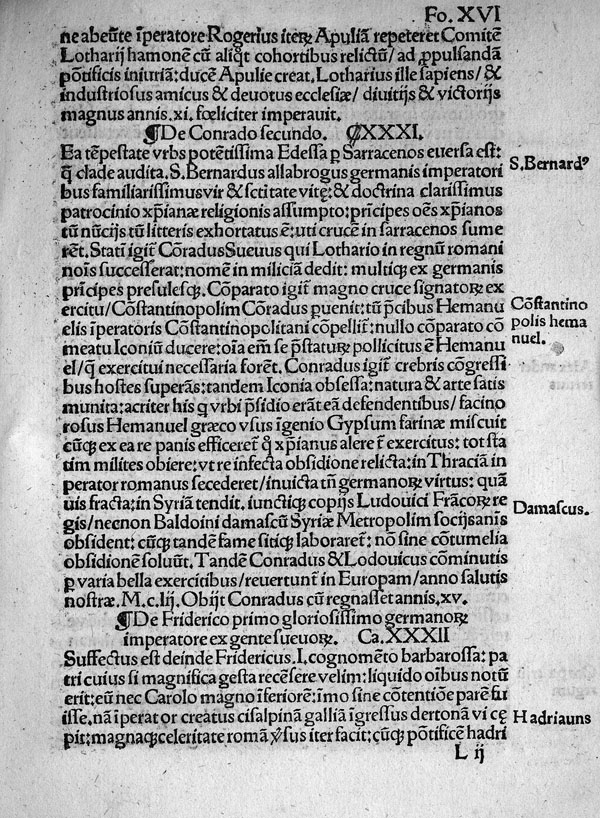 Fo. XVI
ne abeūte īperatore Rogerius iterꝝ Apuliā repeteret Comitē
Lotharij hamonē cū aliqt cohortibus relictū/ad ꝓpulsandā
pōtificis iniuriā: ducē Apulie creat. Lotharius ille sapiens/ &
industriosus amicus & deuotus ecclesiæ/ diuitijs & victorijs
magnus annis. xi. fœliciter imperauit.
¶De Conrado secundo. CXXXI.
Ea tēpestate vrbs potētissima Edessa ꝑ Sarracenos euersa est:
q̄ clade audita. S. Bernardus allabrogus germanis imperatori
S. Bernardꝰ
bus familiarissimus vir & sctitate vitę: & doctrina clarissimus
patrocinio xp̄ianæ religionis assumpto: prīcipes oēs xp̄ianos
tū nūcijs tū litteris exhortatus ē: uti crucē in sarracenos sume
rēt. Statī igit̄ Cōradus Sueuus qui Lothario in regnū romani
nois successerat: nomē in miliciā dedit: multiqꝫ ex germanis
prīcipes presulesqꝫ. Cōparato igit̄ magno cruce signatorꝝ ex
ercitu/ Cōstantinopolim Cōradus ꝑuenit: tū p̄cibus Hemanu
Cōstantino
elis īperatoris Cōstantinopolitani cōpellit̄: nullo cōparato cō
polis hema
meatu Iconiū ducere: oīa em̄ se p̄staturꝝ pollicitus ē Hemanu
nuel.
el/ q̄ exercitui necessaria forēt. Conradus igit̄ crebris cōgressi
bus hostes superās: tandem Iconia obsessa: natura & arte satis
munita: acriter his q vrbi p̄sidio erāt eā defendentibus/ facino
rosus Hemanuel græco vsus īgenio Gypsum farinæ miscuit
cūqꝫ ex ea re panis efficeret̄ q̄ xp̄ianus aleret̄ exercitus: tot sta
tim milites obiere: vt re infecta obsidione relicta: in Thraciā im
perator romanus secederet/ inuicta tn̄ germanorꝝ virtus: quā
uis fracta: in Syriā tendit. iunctiqꝫ copijs Ludouici Frācorꝝ re
gis/ necnon Baldoini damascū Syriæ Metropolim socijs anīs
Damascus.
obsident: cūqꝫ tandē fame sitiqꝫ laboraret̄: nō sine cōtumelia
obsidionē soluūt. Tandē Conradus & Lodouicus cōminutis
ꝑ varia bella exercitibus/ reuertunt̄ in Europam/ anno salutis
nostræ. M. c. lij. Obijt Conradus cū regnasset annis. xv.
¶De Friderico primo gloriosissimo germanorꝝ
imperatore ex gente sueuorꝝ. Ca. XXXII
Suffectus est deinde Fridericus. I. cognomēto barbarossa: pa
tri cuius si magnifica gesta recēsere velim: liquido oībus notū
erit: eū nec Carolo magno īferiorē: īmo sine cōtentiōe parē fu
isse. nā īperator creatus cisalpinā galliā īgressus dertonā vi cę
Hadriauns
pit: magnaqꝫ celeritate romā ꝟsus iter facit: cūqꝫ pōtificē hadri
L ij